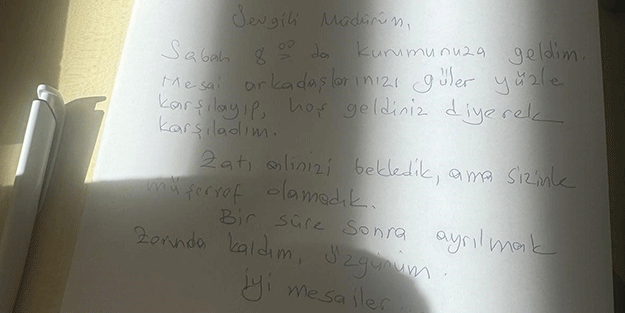 Sevgili Müdürüm,
Sabah 8 00 da kurumunuza geldim.
Mesai arkadaşlarınızı güler yüzle
karşılayıp, hoş geldiniz diyerek
karşıladım.
Zatı alinizi bekledik, ama sizinle
müşerrof olamadık.
Bir süre sonra ayrılmak
zorunda kaldım, üzgünüm.
iyi mesailer...